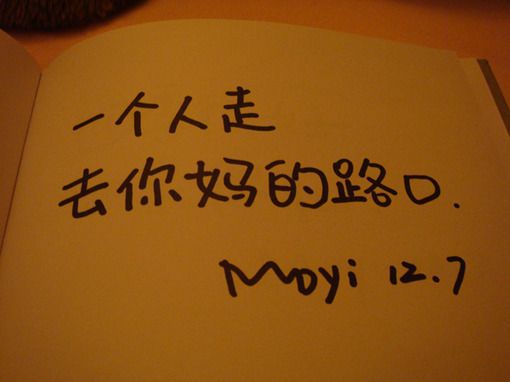 一个人走
去你妈的路口.
Moyi 12.7